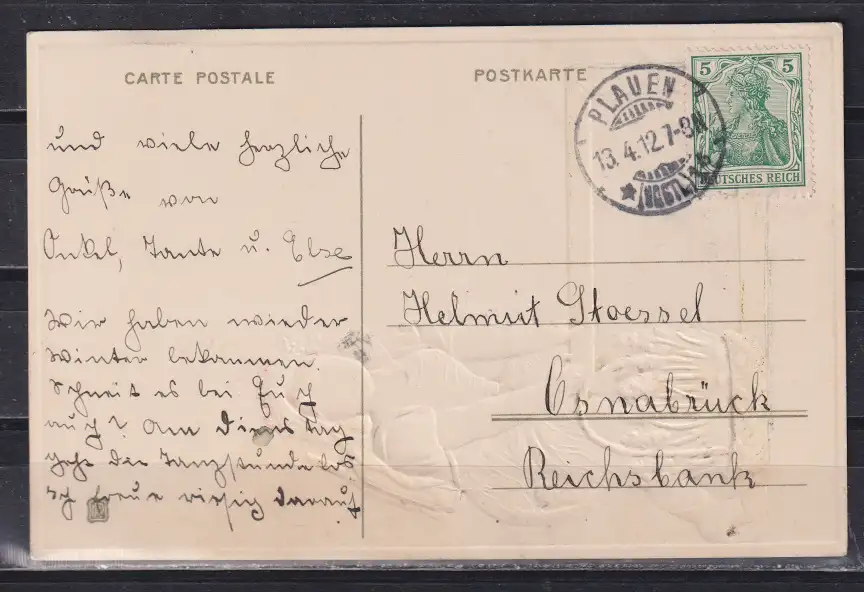 CARTE POSTALE
POSTKARTE
5 5
DEUTSCHES REICH
PLAUEN
13.4.12.7-8N
★ (VOGTL.)
und viele herzliche
Grüße von
Onkel, Tante u. Else
Wir haben wieder
Winter bekommen.
Schneit es bei Euch
auch? Am Dienstag
geht die Tanzstunde los.
Ich freue riesig darauf.
Herrn
Helmut Stoessel
Osnabrück
Reichsbank